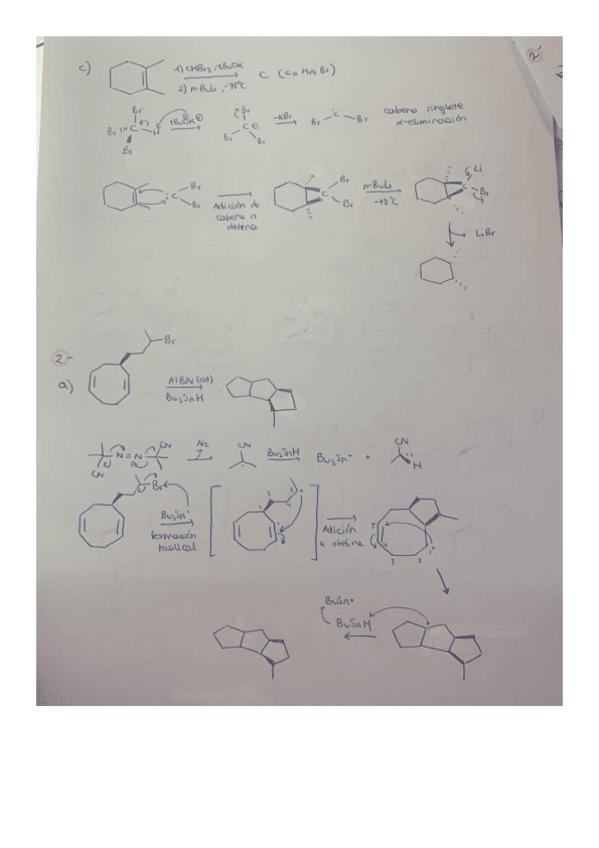 c)
1) CHBr3, tBuOK
2) n-BuLi, -78ºC
C (C11 H19 Br)
Br
Br C H
Br
tBuOK
Br
C
Br Br
-KBr
Br C Br
carbeno singlete
α-eliminación
C Br
Br
Adición de
carbeno a
olefina
C Br
Br
n-BuLi
-78ºC
Li
C Br
LiBr
2-
a)
Br
AIBN (cat)
Bu3SnH
CN
N=N
CN
N2
Bu3SnH
Bu3Sn•
+
CN
H
Br
Bu3Sn•
Formación
radical
Adición
a olefina
BuSn•
BuSnH